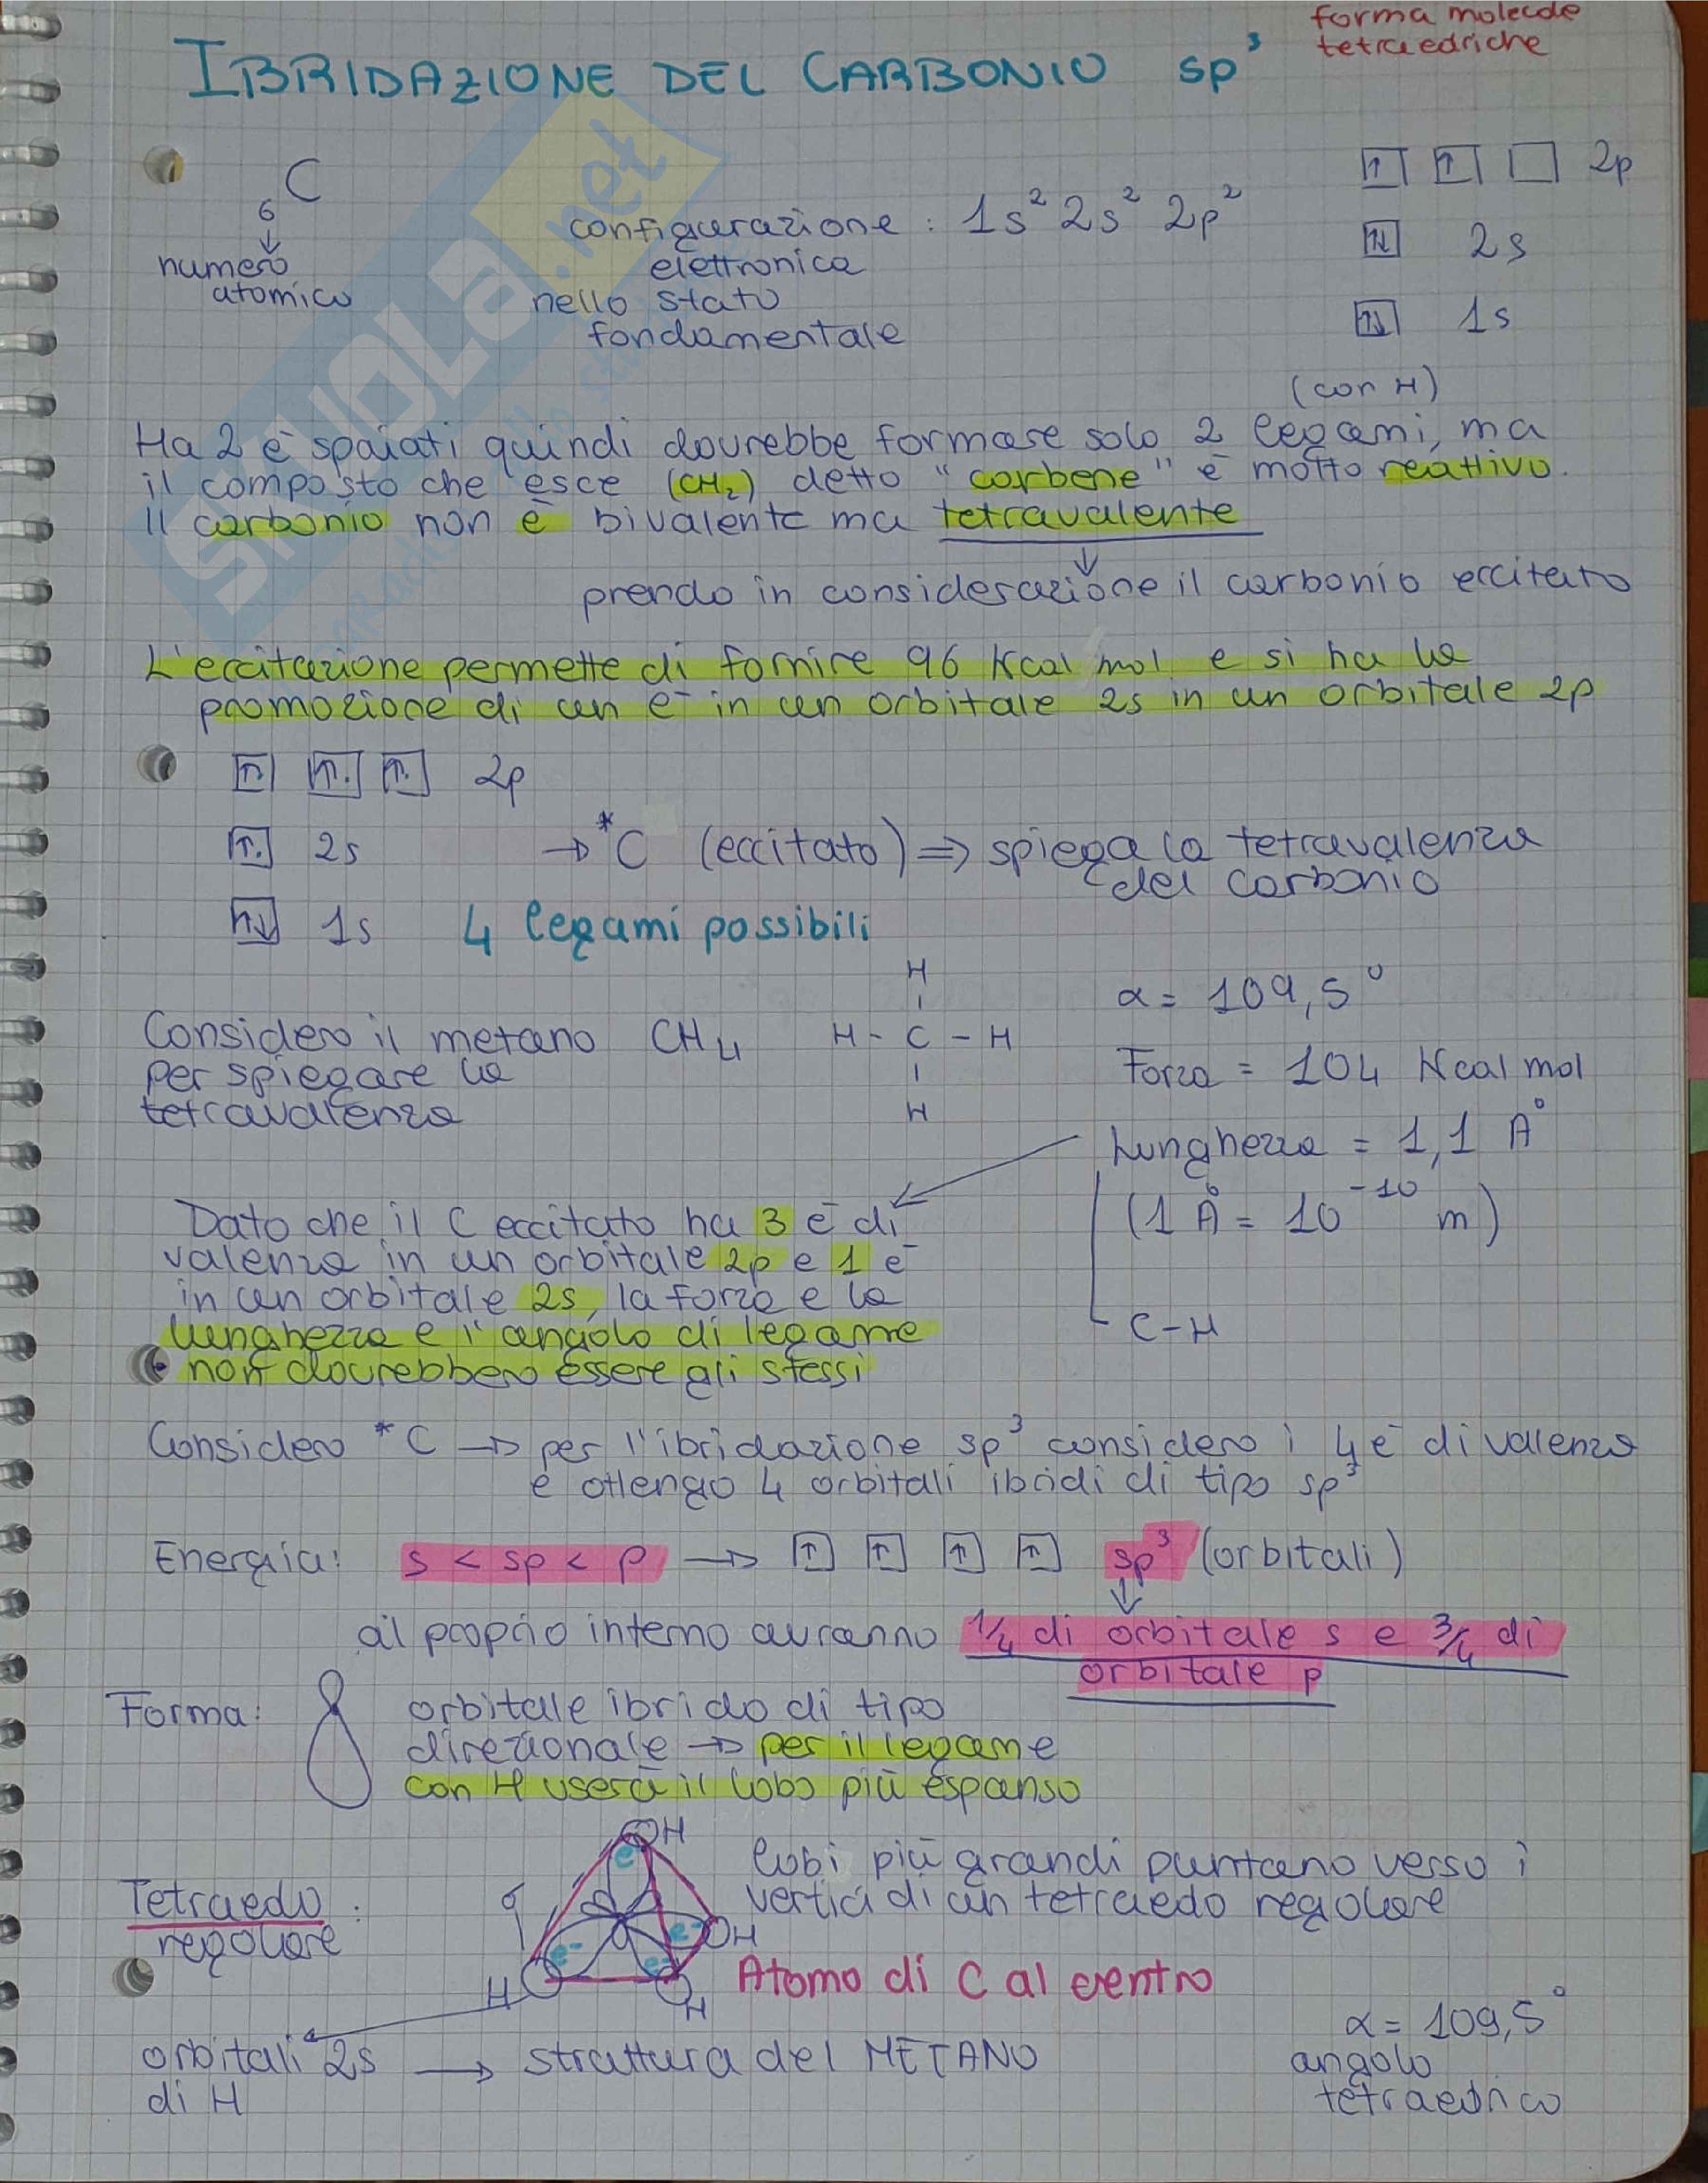 forma molecole
tetraedriche
IBRIDAZIONE DEL CARBONIO sp³
₆C
numero
atomico
configurazione : 1s² 2s² 2p²
elettronica
nello stato
fondamentale
↑ ↑ 2p
↑↓ 2s
↑↓ 1s
(con H)
Ha 2 e⁻ spaiati quindi dovrebbe formare solo 2 legami, ma
il composto che esce (CH₂) detto "carbene" è molto reattivo.
Il carbonio non è bivalente ma tetravalente
↓
prendo in considerazione il carbonio eccitato
L'eccitazione permette di fornire 96 Kcal mol e si ha la
promozione di un e⁻ in un orbitale 2s in un orbitale 2p
↑ ↑. ↑. 2p
↑. 2s → *C (eccitato) ⇒ spiega la tetravalenza
del carbonio
↑↓ 1s 4 legami possibili
Considero il metano CH₄
per spiegare la
tetravalenza
H
H - C - H
H
α = 109,5°
Forza = 104 Kcal mol
Lunghezza = 1,1 Å
(1 Å = 10⁻¹⁰ m)
C-H
Dato che il C eccitato ha 3 e⁻ di
valenza in un orbitale 2p e 1 e⁻
in un orbitale 2s, la forza e la
lunghezza e l'angolo di legame
non dovrebbero essere gli stessi
Considero *C → per l'ibridazione sp³ considero i 4 e⁻ di valenza
e ottengo 4 orbitali ibridi di tipo sp³
Energia: s < sp < p → ↑ ↑ ↑ ↑ sp³ (orbitali)
↓
al proprio interno avranno 1/4 di orbitale s e 3/4 di
orbitale p
Forma: orbitale ibrido di tipo
direzionale → per il legame
con H userà il lobo più espanso
Tetraedo :
regolare
σ
H
H
H
H
e⁻
e⁻
e⁻
e⁻
lobi più grandi puntano verso i
vertici di un tetraedo regolare
Atomo di C al centro
orbitali 2s → struttura del METANO
di H
α = 109,5°
angolo
tetraedrico
SKUOLA.net